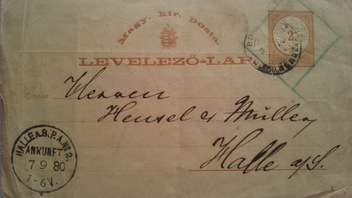 Magy. kir. posta.
LEVELEZŐ-LAP
Herren
Hensel & Müller,
Halle a/S.
HALLE A.S. P.A. No 2.
ANKUNFT
7 9 80
1-6V.